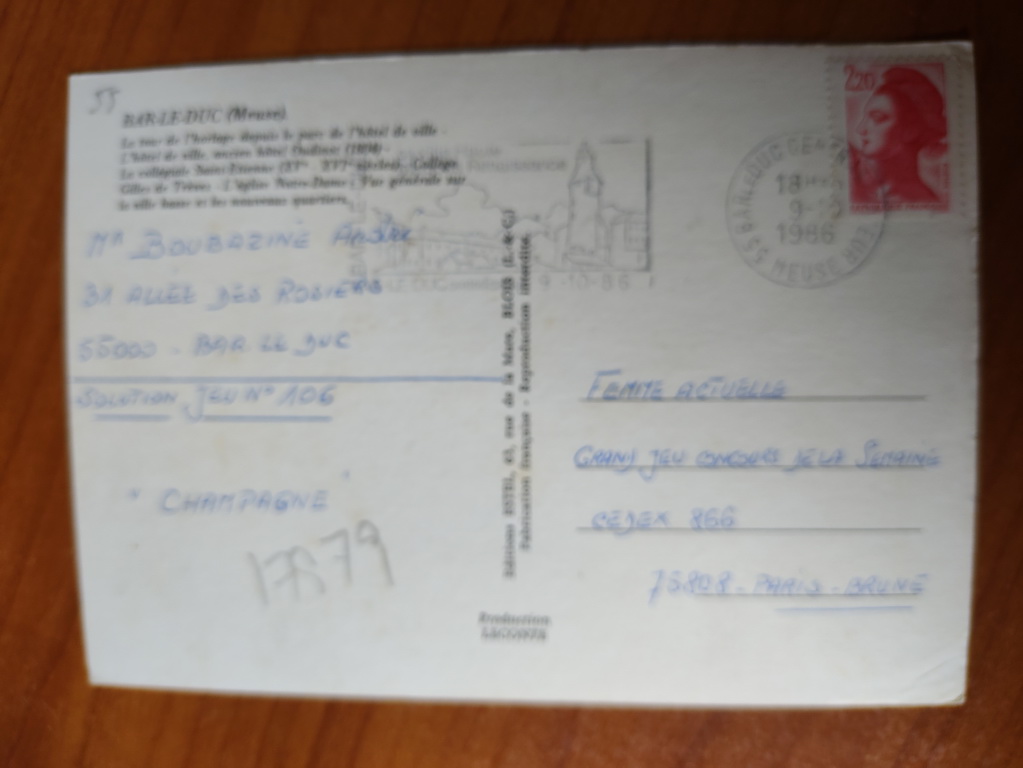 55
BAR-LE-DUC (Meuse).
La tour de l'horloge depuis le parc de l'hôtel de ville -
L'hôtel de ville, ancien hôtel Oudinot (1804) -
La collégiale Saint-Etienne - Collège
Gilles de Trèves - L'église Notre-Dame - Vue générale sur
la ville basse et les nouveaux quartiers.
Renaissance
9 -10-86
BAR-LE-DUC
18H
9-
1986
55 MEUSE
2,20
Mr BOUBAZINE André
31 ALLÉE DES ROSIERS
55000 - BAR LE DUC
SOLUTION JEU N° 106
" CHAMPAGNE "
17879
Editions ESTEL, 63, rue de la Mare, BLOIS (L.-&-C.)
Fabrication française - Reproduction interdite.
Production
LECONTE
FEMME ACTUELLE
GRAND JEU CONCOURS DE LA SEMAINE
CEDEX 866
75808 - PARIS - BRUNE